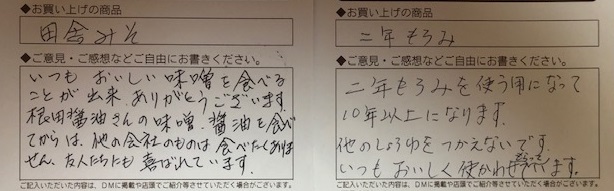 ◆お買い上げの商品
田舎みそ
◆ご意見・ご感想などご自由にお書きください。
いつも おいしい味噌を食べる
ことが出来、ありがとうございます。
根田醬油さんの味噌、醬油を食べ
てからは、他の会社のものは食べたくありま
せん。友人たちにも喜ばれています。
ご記入いただいた内容は、DMに掲載や店頭でご紹介等させていただく場合がございます。
◆お買い上げの商品
二年もろみ
◆ご意見・ご感想などご自由にお書きください。
二年もろみを使う用になって
10年以上になります。
他のしょうゆをつかえないです。
いつもおいしく使かわせて
います。
ご記入いただいた内容は、DMに掲載や店頭でご紹介等させていただく場合がございます。